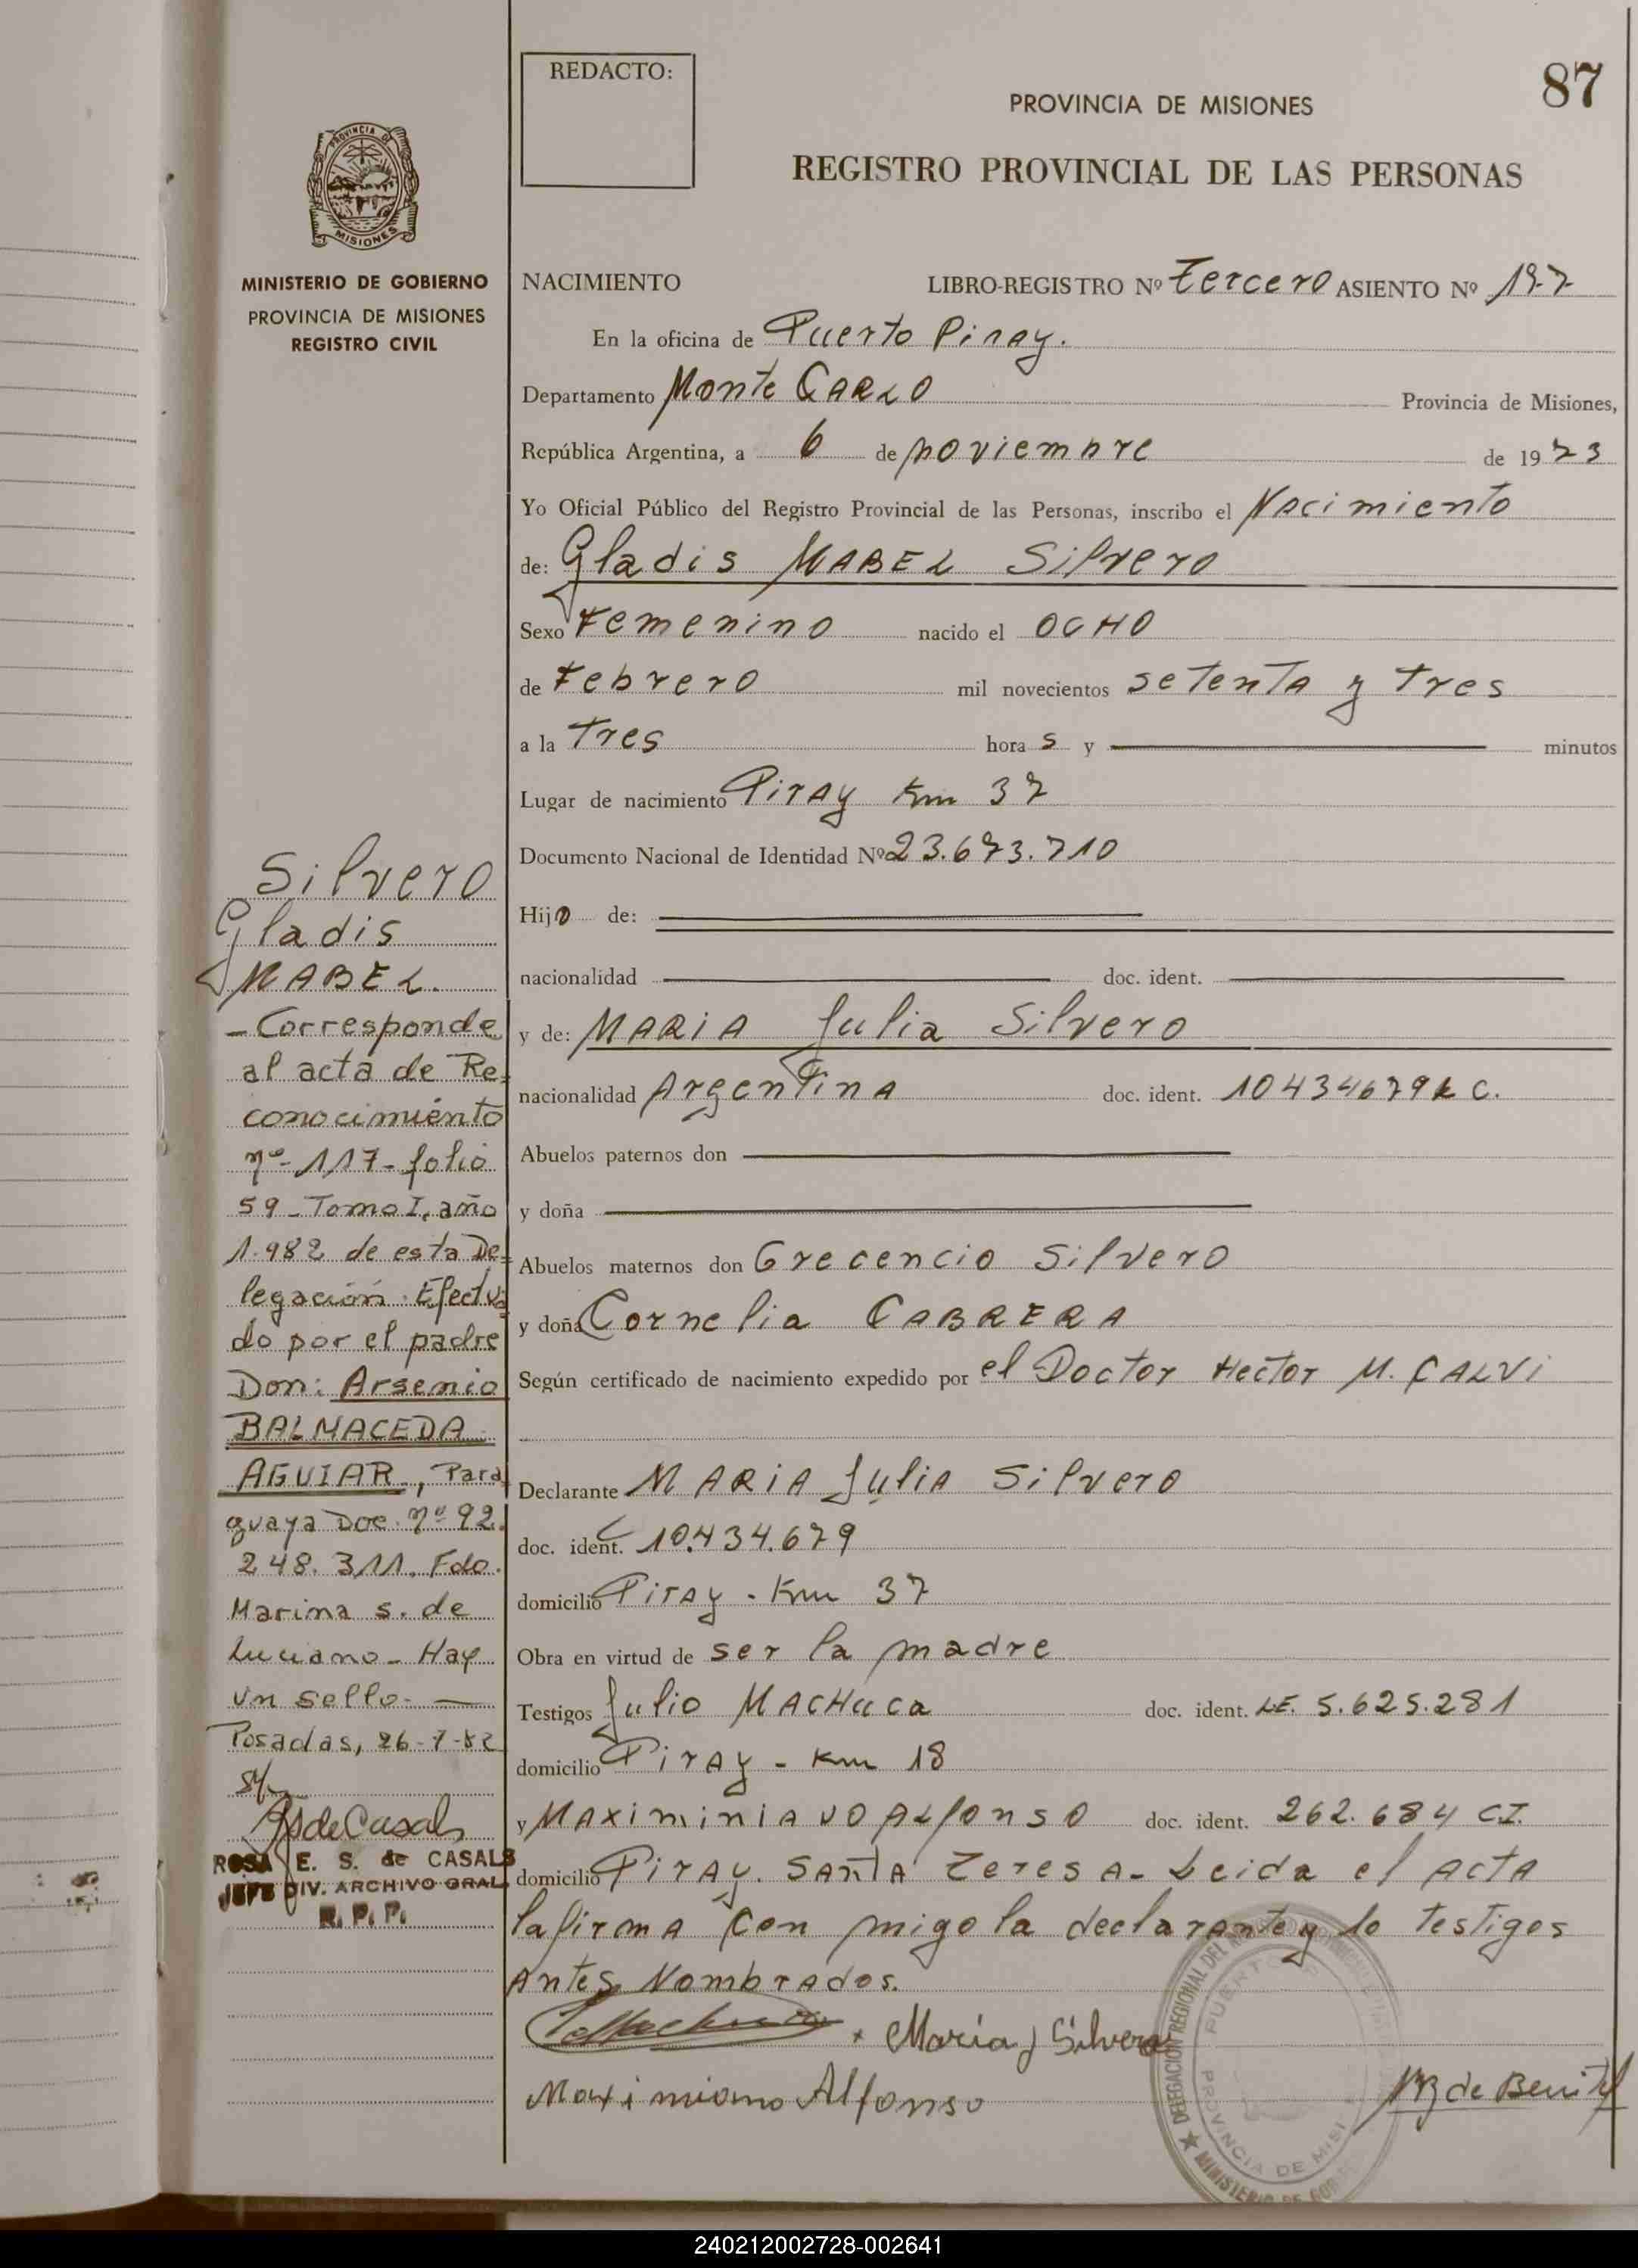 REDACTO:
87
PROVINCIA DE MISIONES
REGISTRO PROVINCIAL DE LAS PERSONAS
PROVINCIA DE
MISIONES
MINISTERIO DE GOBIERNO
PROVINCIA DE MISIONES
REGISTRO CIVIL
NACIMIENTO LIBRO-REGISTRO Nº tercero ASIENTO Nº 197
En la oficina de Puerto Piray.
Departamento Monte CARLO Provincia de Misiones,
República Argentina, a 6 de noviembre de 1973
Yo Oficial Público del Registro Provincial de las Personas, inscribo el Nacimiento
de: Gladis MABEL Silvero
Sexo Femenino nacido el OCHO
de Febrero mil novecientos setenta y tres
a la Tres hora s y minutos
Lugar de nacimiento Piray Km 37
Documento Nacional de Identidad Nº 23.673.710
Hijo de:
nacionalidad doc. ident.
y de: MARIA Julia Silvero
nacionalidad Argentina doc. ident. 10434679 C.
Abuelos paternos don
y doña
Abuelos maternos don Crecencio Silvero
y doña Cornelia CABRERA
Según certificado de nacimiento expedido por el Doctor Hector M. CALVI
Declarante MARIA Julia Silvero
doc. ident. 10.434.679
domicilio Piray - Km 37
Obra en virtud de ser la madre
Testigos Julio MACHuca doc. ident. LE. 5.625.281
domicilio Piray - Km 18
y MAXiminiANO ALfonso doc. ident. 262.684 CI.
domicilio Piray. SANTA TeresA- Leida el ActA
la firmA con migo la declarante y lo testigos
Antes Nombrados.
María J Silvero
Maximiano Alfonso
M de Benit
DELEGACION REGIONAL DEL
PUERTO
PROVINCIA DE MISI
MINISTERIO DE GOB
Silvero
Gladis
MABEL.
- Corresponde
al acta de Re=
conocimiento
nº- 117- folio
59 - Tomo I, año
1.982 de esta De=
legación. Efectua=
do por el padre
Don: Arsenio
BALMACEDA
AGUIAR, Para
guaya Doc. nº 92.
248.311. Fdo.
Marina S. de
Luciano - Hay
un sello. —
Posadas, 26-7-82
RSdeCasals
ROSA E. S. de CASALS
JEFE DIV. ARCHIVO GRAL
R. P. P.
240212002728-002641